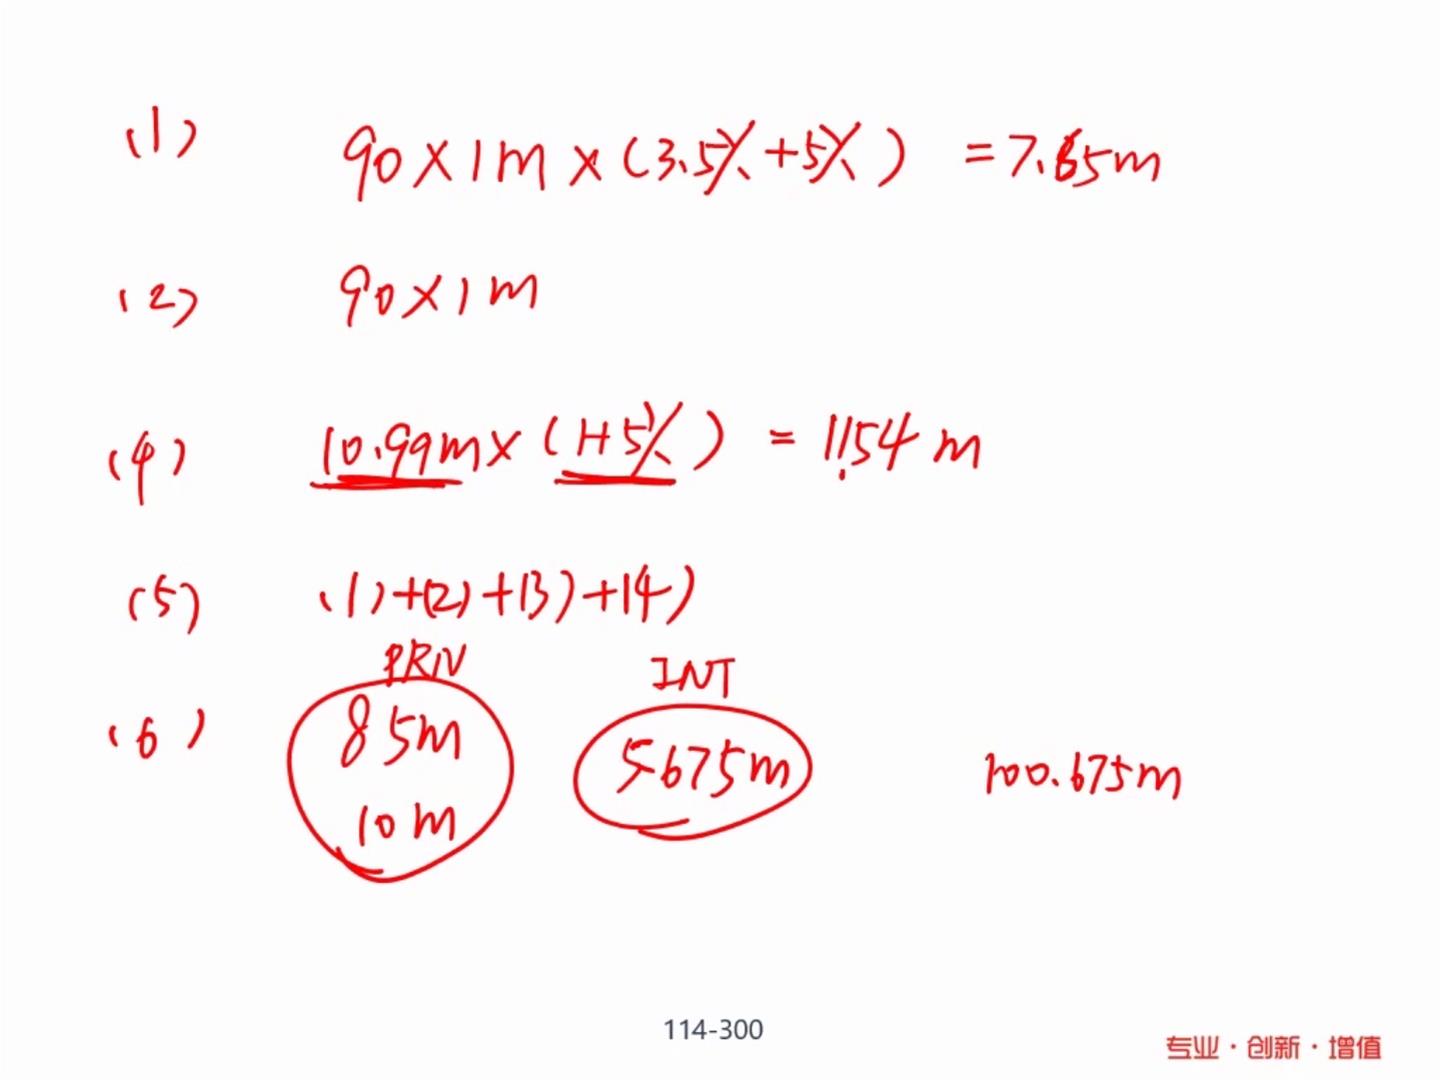 (1) 90×1m×(3.5%+5%) =7.65m
(2) 90×1m
(4) 10.99m×(1+5%) = 11.54m
(5) (1)+(2)+(3)+(4)
PRIV INT
(6) 85m 5.675m 100.675m
10m
114-300
专业·创新·增值